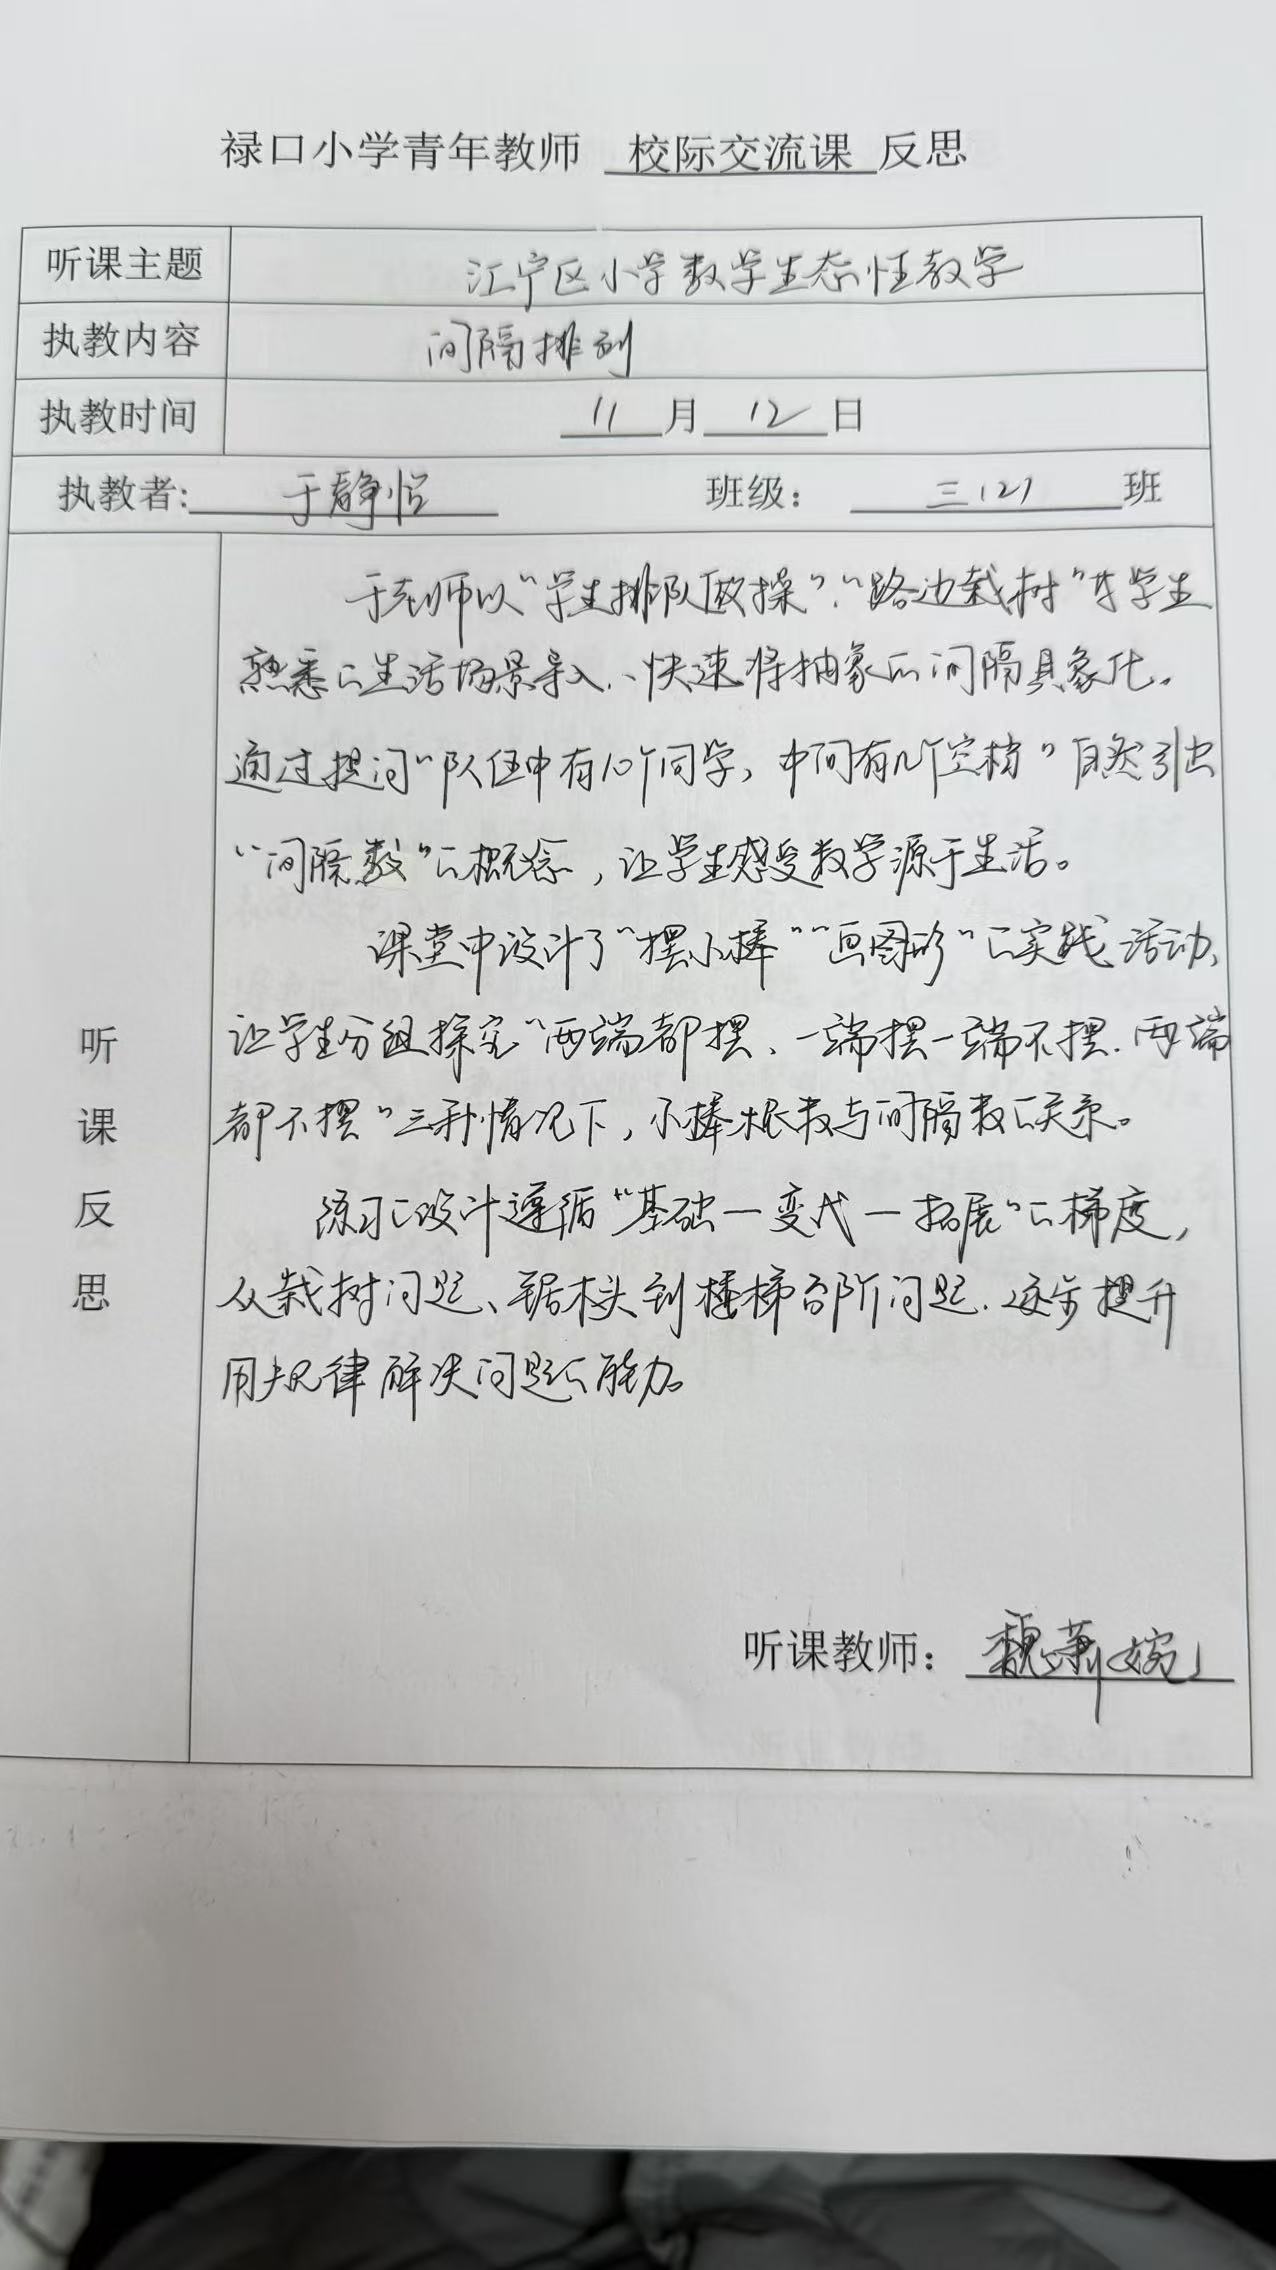 禄口小学青年教师 校际交流课 反思
听课主题 江宁区小学数学生态性教学
执教内容 间隔排列
执教时间 11 月 12 日
执教者: 于静怡 班级: 三(2) 班
听课反思
于老师以“学生排队做操”、“路边栽树”等学生
熟悉的生活场景导入、快速将抽象的间隔具象化。
通过提问“队伍中有10个同学,中间有几个空档”自然引出
“间隔数”的概念,让学生感受数学源于生活。
课堂中设计了“摆小棒”“画图形”的实践活动、
让学生分组探究“两端都摆、一端摆一端不摆、两端
都不摆”三种情况下,小棒根数与间隔数的关系。
练习的设计遵循“基础—变式—拓展”的梯度,
从栽树问题、锯木头到楼梯台阶问题、逐步提升
用规律解决问题的能力。
听课教师: 魏萧婉